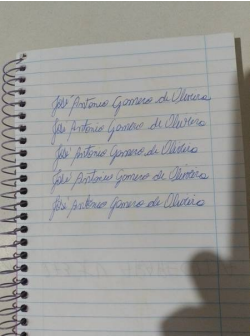 José Antonio Gomero de Oliveira
José Antonio Gomero de Oliveira
José Antonio Gomero de Oliveira
José Antonio Gomero de Oliveira
José Antonio Gomero de Oliveira